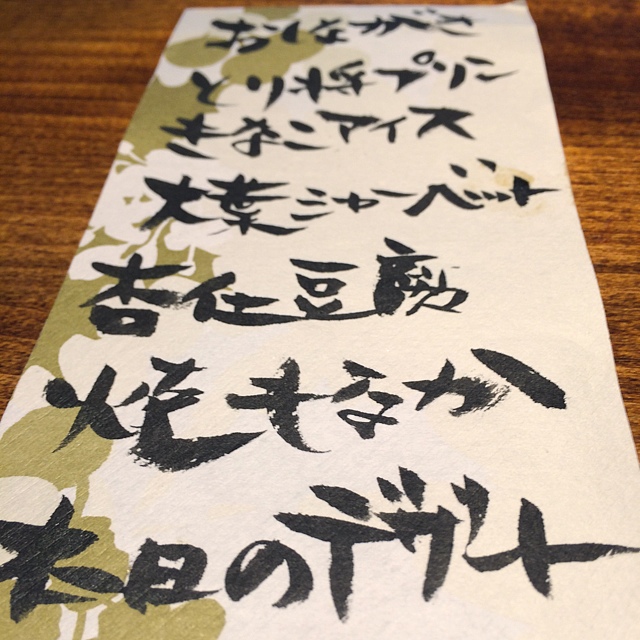 おしながき
とり将プリン
きなこアイス
大葉シャーベット
杏仁豆腐
焼もなか
本日のデザート